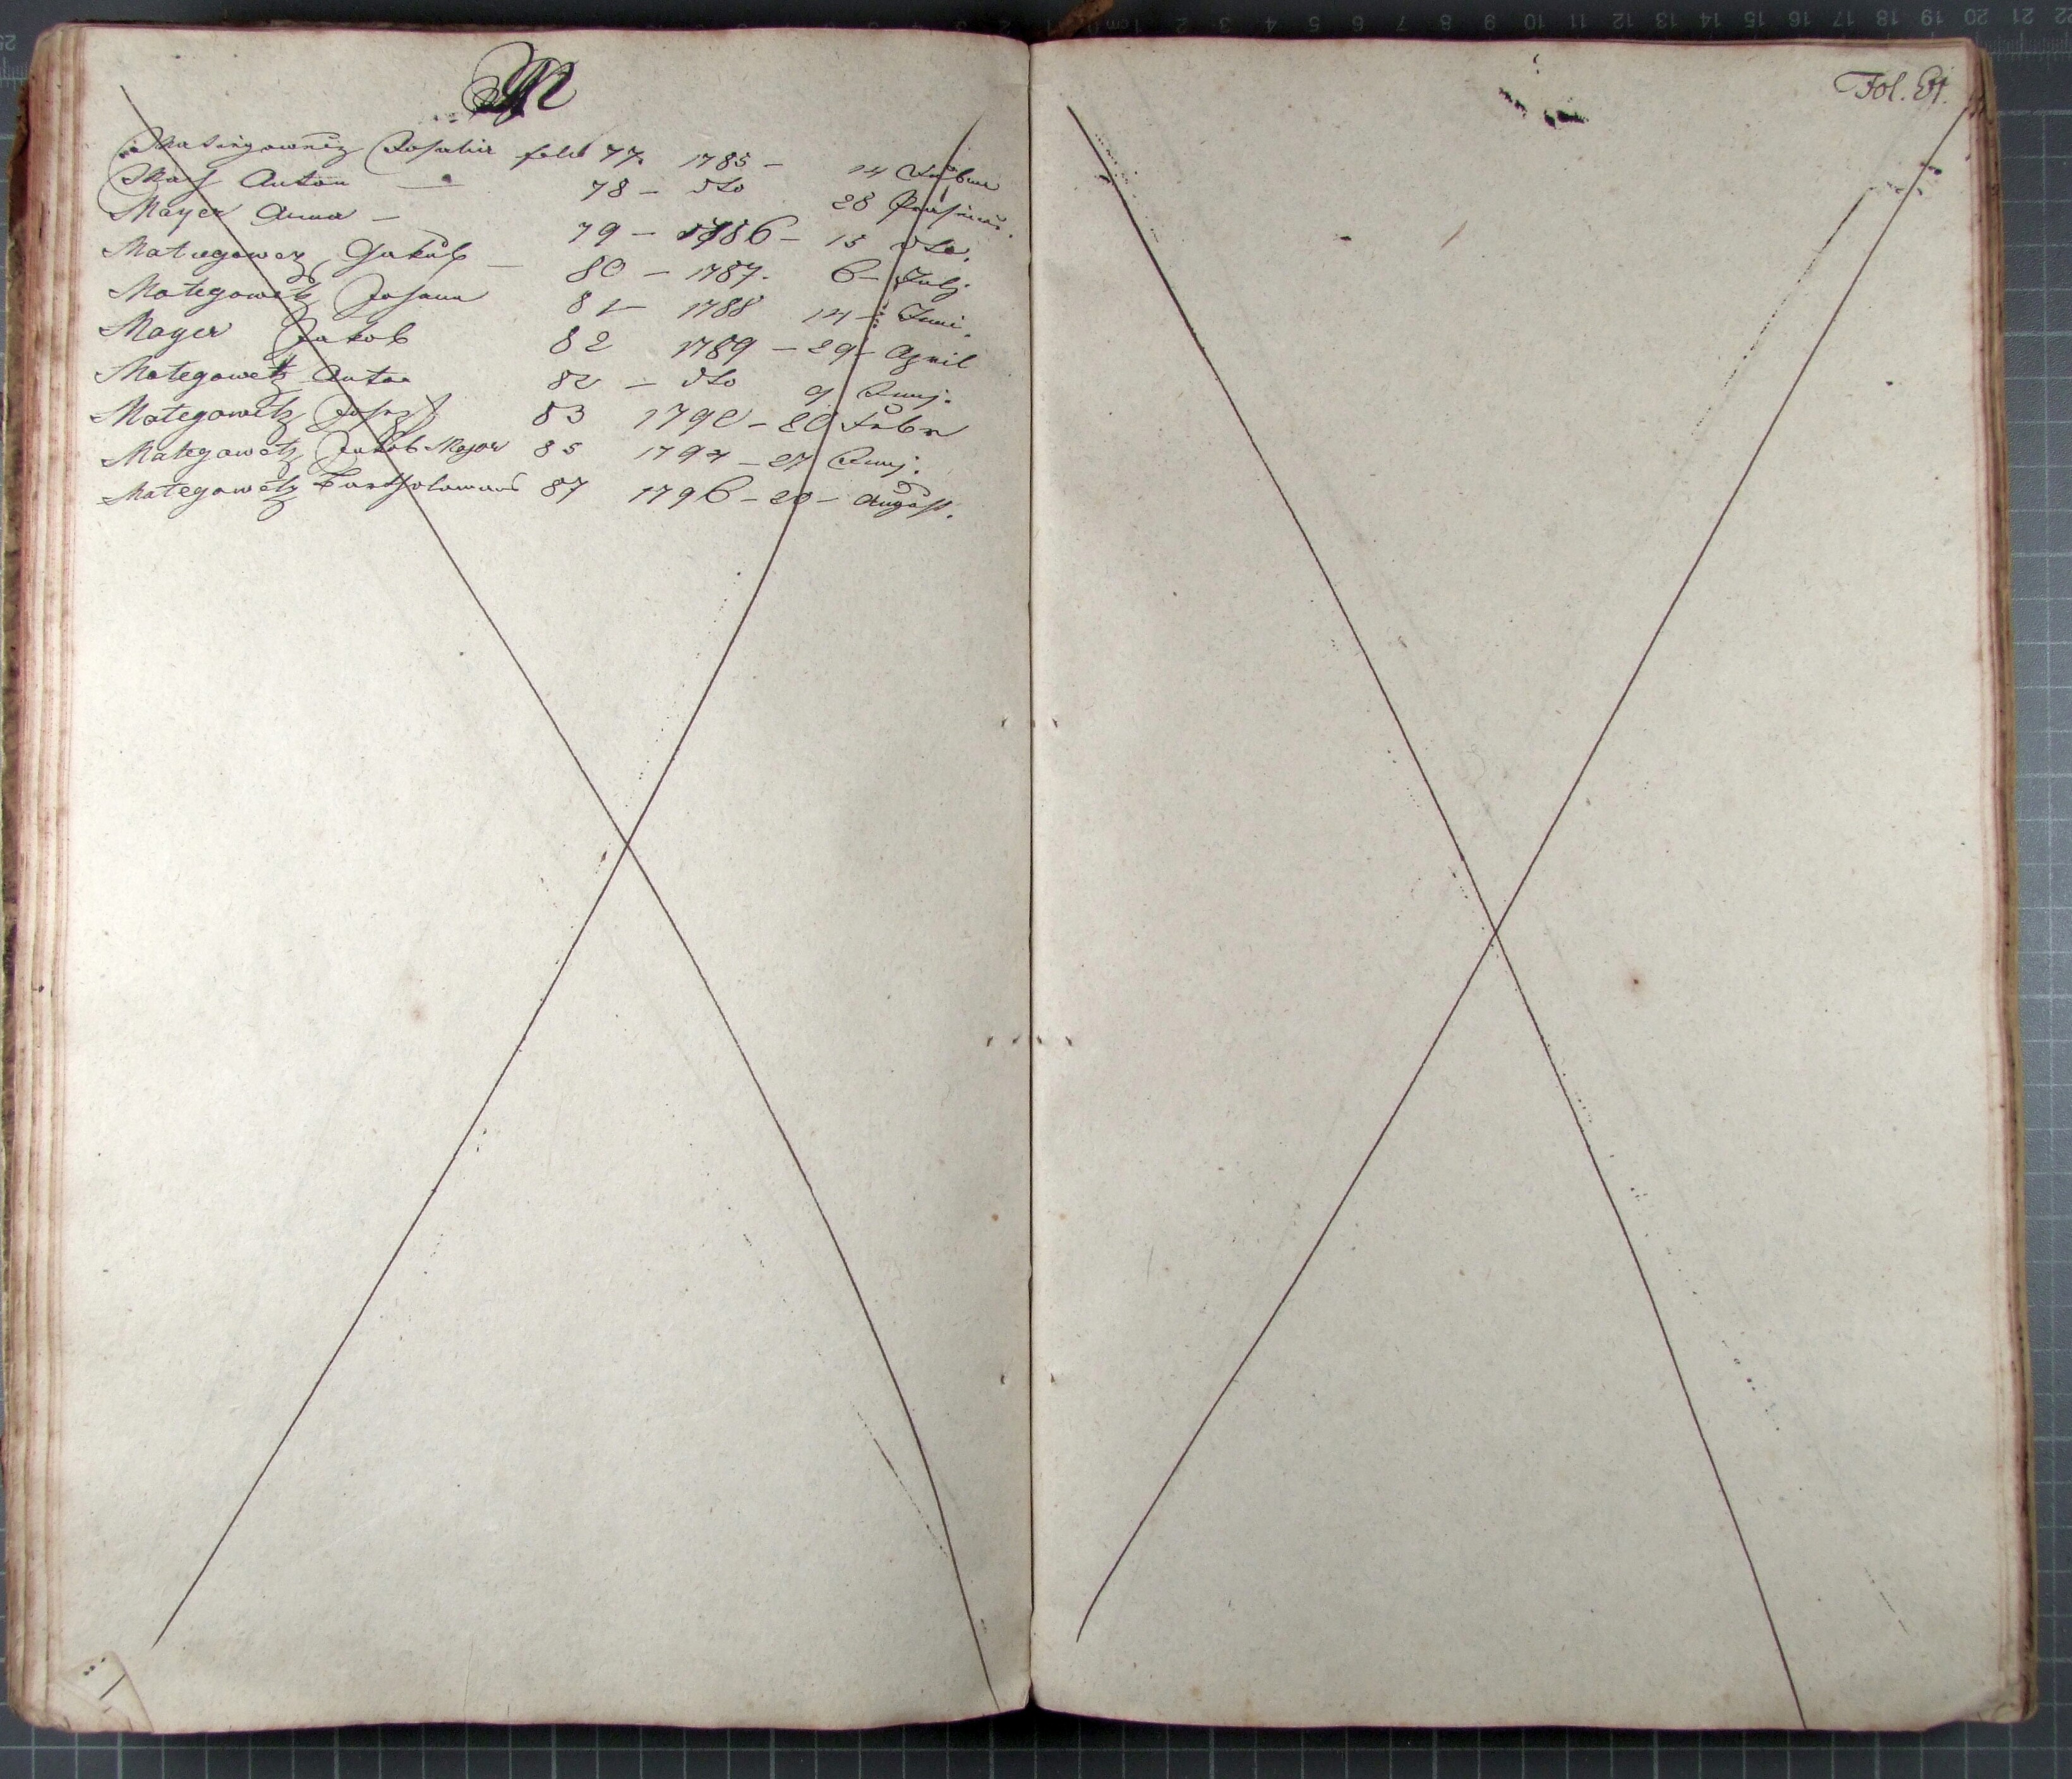 M
Rosalia folio 77. 1785 – 14
Anton — 78 – dto 28
Mayer Anna – 79 – 1786 – 15 dto.
Jakob – 80 – 1787. 6 – July
Mategowetz Johann 81 – 1788 14 – Juni.
Mayer Jakob 82 1789 – 29 – April
Mategowetz Anton 82 – dto 9 Junj.
Mategowetz Josef 83 1792 – 20 Febr
Mategowetz Jakob Major 85 1794 – 27 Junj.
Mategowetz Bartholomaus 87 1796 – 20 – August.
Fol.